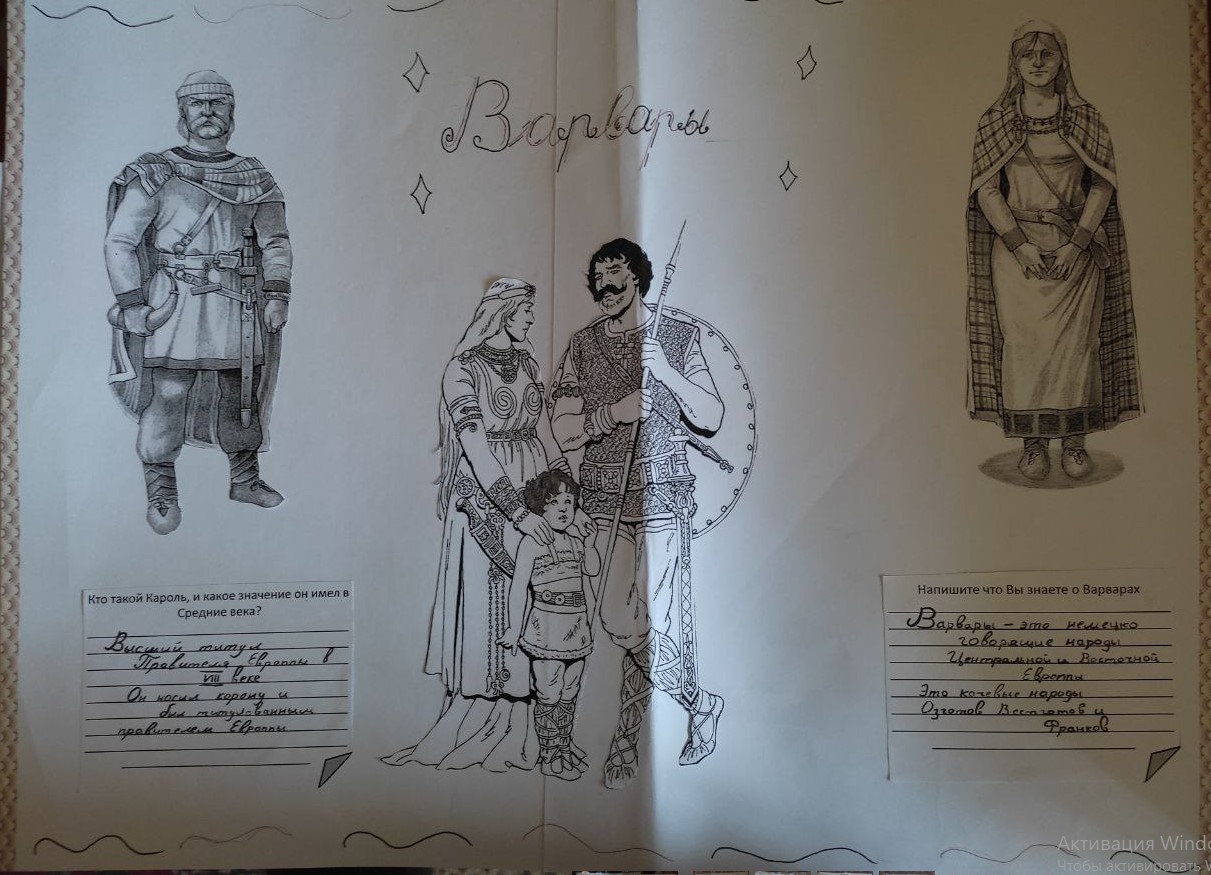 Варвары
Кто такой Кароль, и какое значение он имел в
Средние века?
Высший титул
Правителя Европы в
VIII веке
Он носил корону и
был титулованным
правителем Европы
Напишите что Вы знаете о Варварах
Варвары - это немецко
говорящие народы
Центральной и Восточной
Европы
Это кочевые народы
Озготов Вестготов и
Франков
Активация Windo
Чтобы активировать W